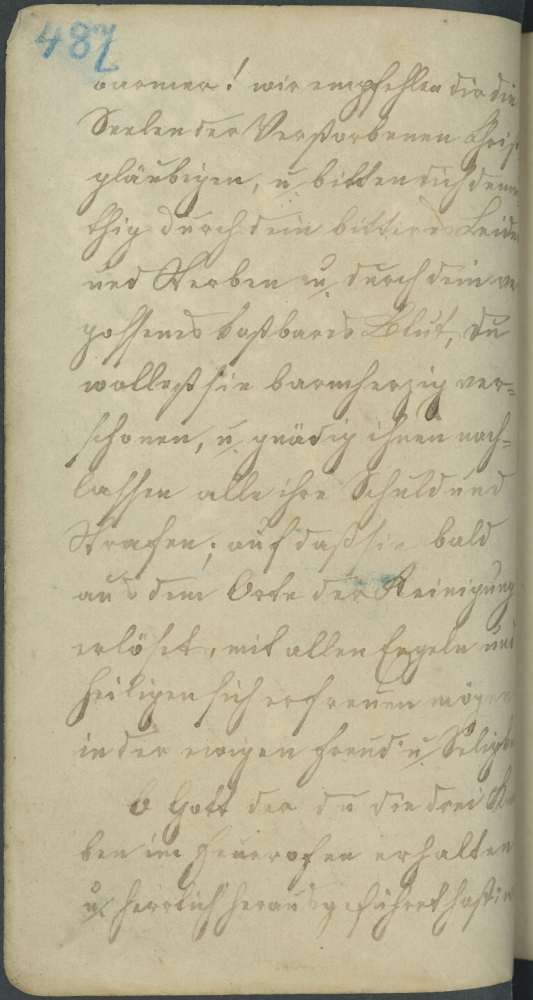 487
barmer! wir empfehlen dir die
Seelen der Verstorbenen Christ
gläubigen, u. bitten dich demü
thig durch dein bitteres Leide
und Sterben u. durch dein ver
gossenes kostbares Blut, du
wollest sie barmherzig ver=
schonen, u. gnädig ihnen nach=
lassen alle ihre Schuld und
Strafen; auf daß sie bald
aus dem Orte der Reinigung
erlöset, mit allen Engeln und
Heiligen sich erfreuen mögen
in der ewigen Freud u. Seligke
O Gott der du die drei Kna
ben im Feuerofen erhalten
u. herrlich herausgeführet hast